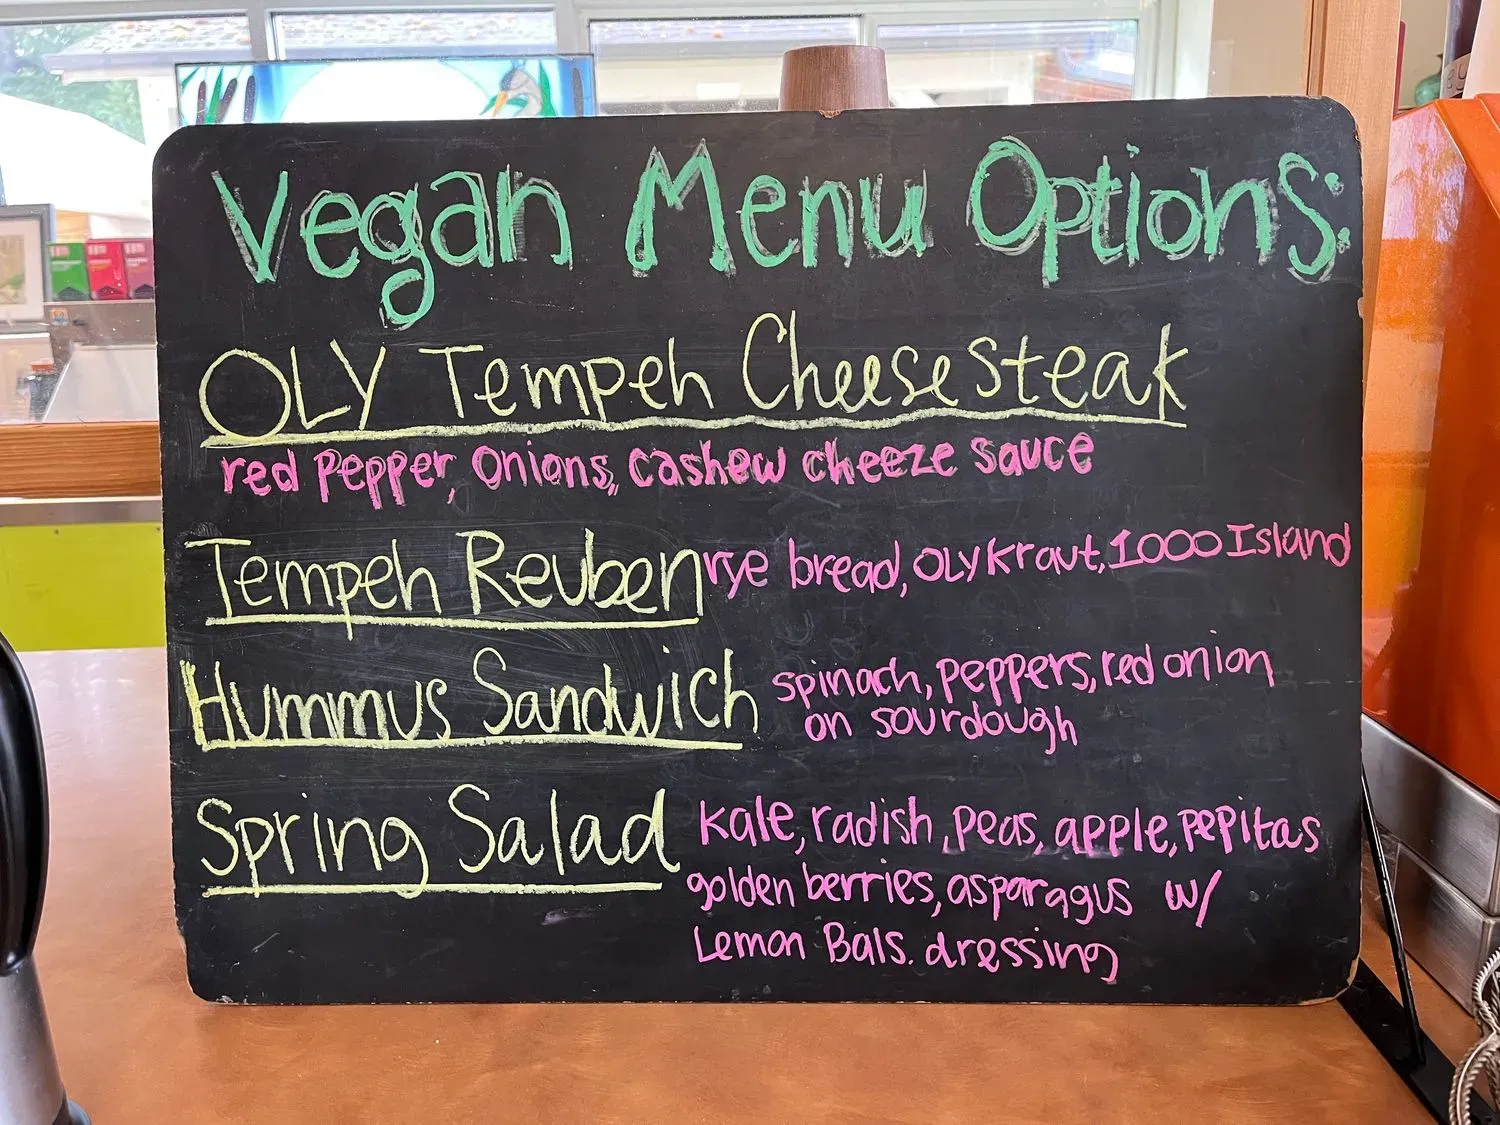 Vegan Menu Options:
OLY Tempeh Cheesesteak
red pepper, onions, cashew cheeze sauce
Tempeh Reuben rye bread, OLYKraut, 1000 Island
Hummus Sandwich spinach, peppers, red onion
on sourdough
Spring Salad kale, radish, peas, apple, pepitas
golden berries, asparagus w/
Lemon Bals. dressing